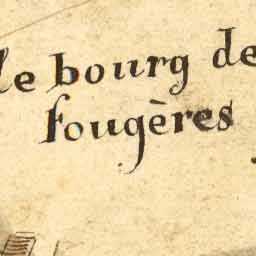 le bourg de
fougères